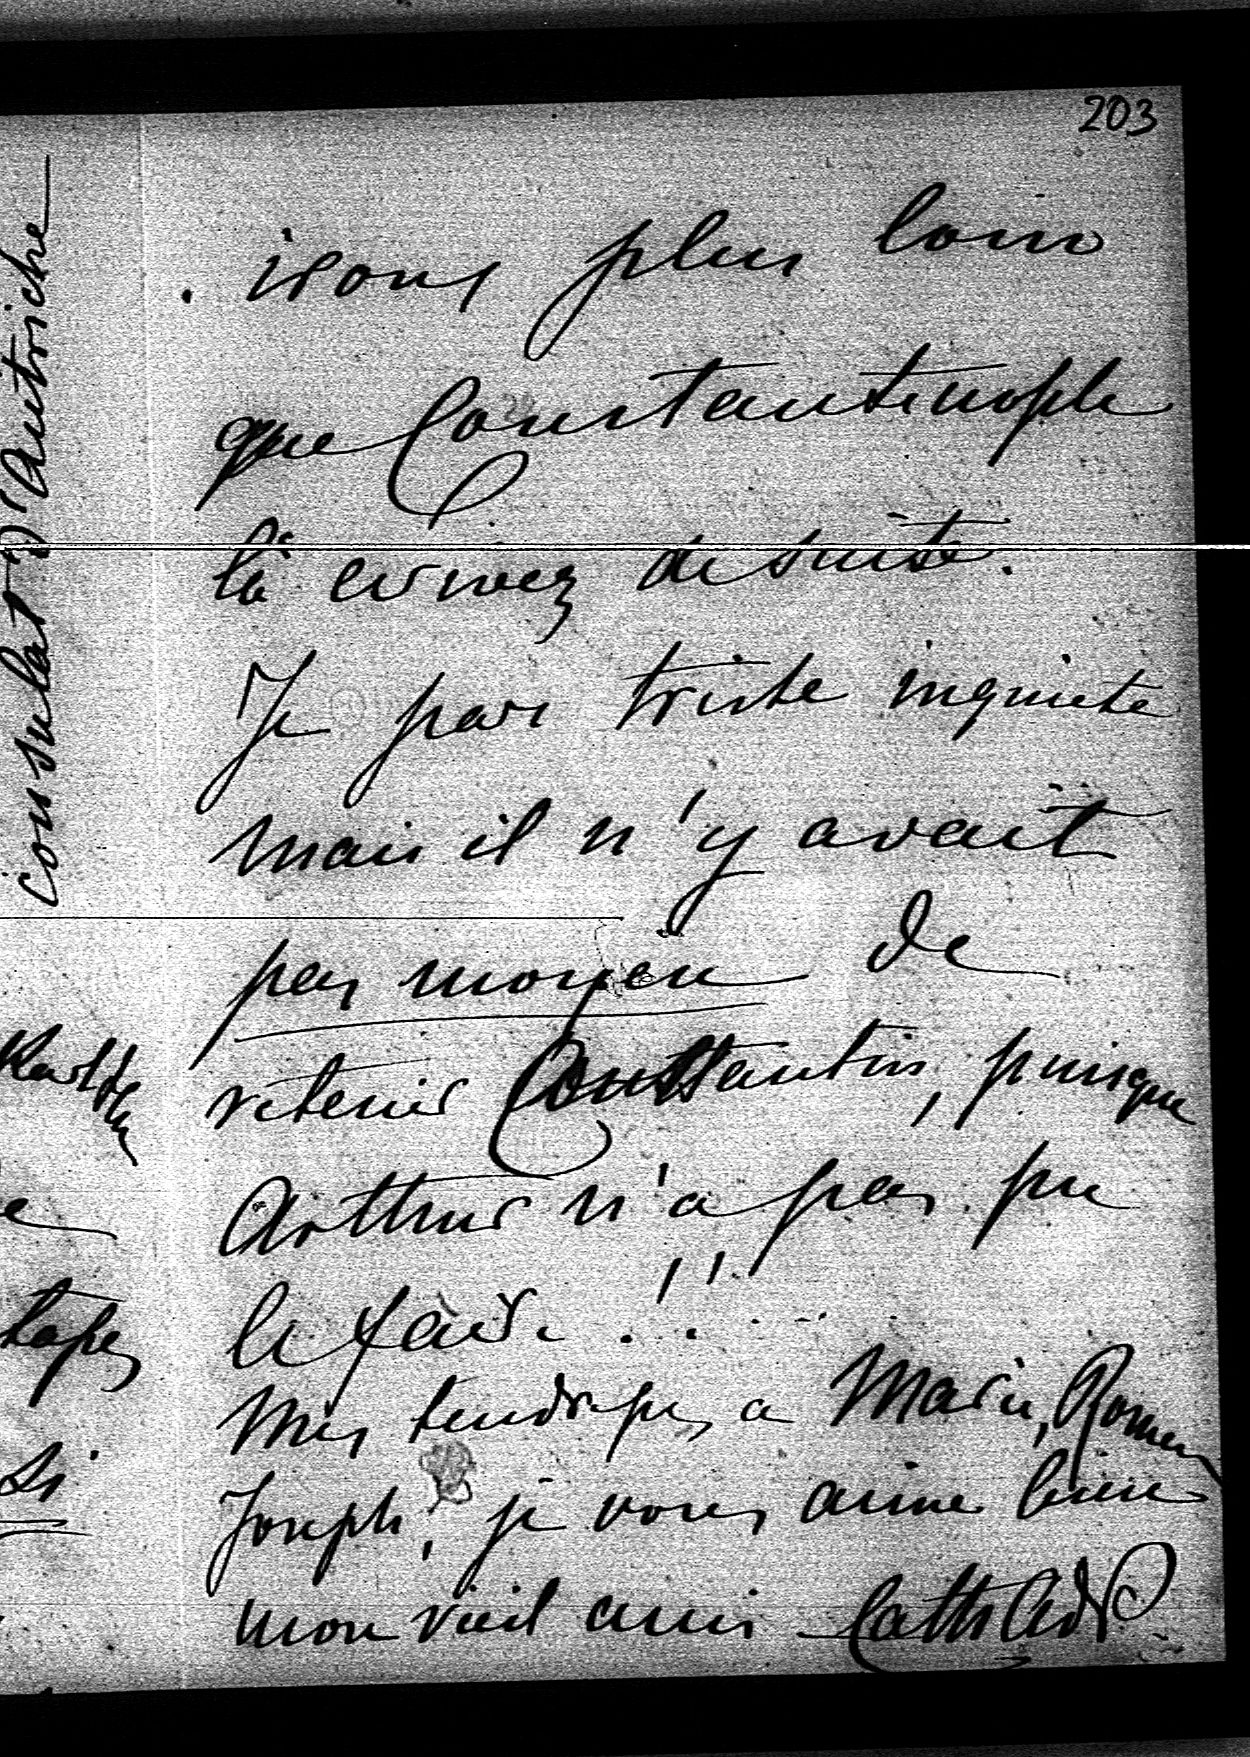 203
irons plus loin
que Constantinople
là ecrivez de suite.
Je pars triste inquiete
mais il n'y avait
pas moyen de
retenir Constantin, puisque
Arthur n'a pas pu
le faire . . ! !
Mes tendresses a Marie, Roman
Joseph, je vous aime bien
mon vieil ami
consulat d'Autriche